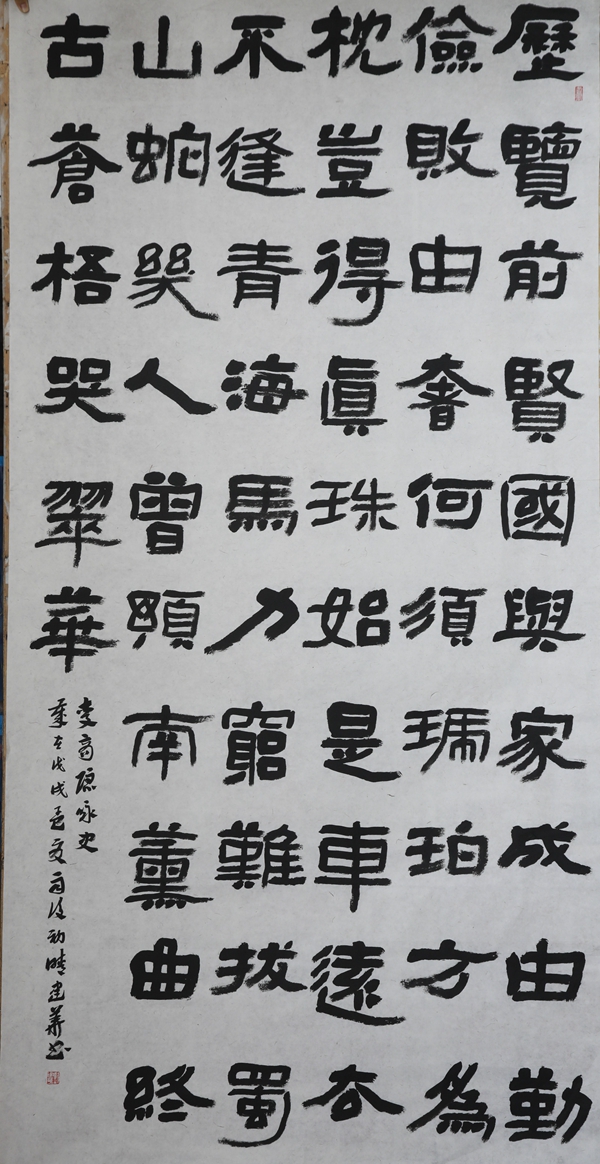 歷覽前賢國與家成由勤
儉敗由奢何須琥珀方為
枕豈得眞珠始是車遠去
不逢青海馬力窮難拔蜀
山蛇幾人曾預南薰曲終
古蒼梧哭翠華
李商隱咏史
歲在戊戌孟夏雨後初晴建華書